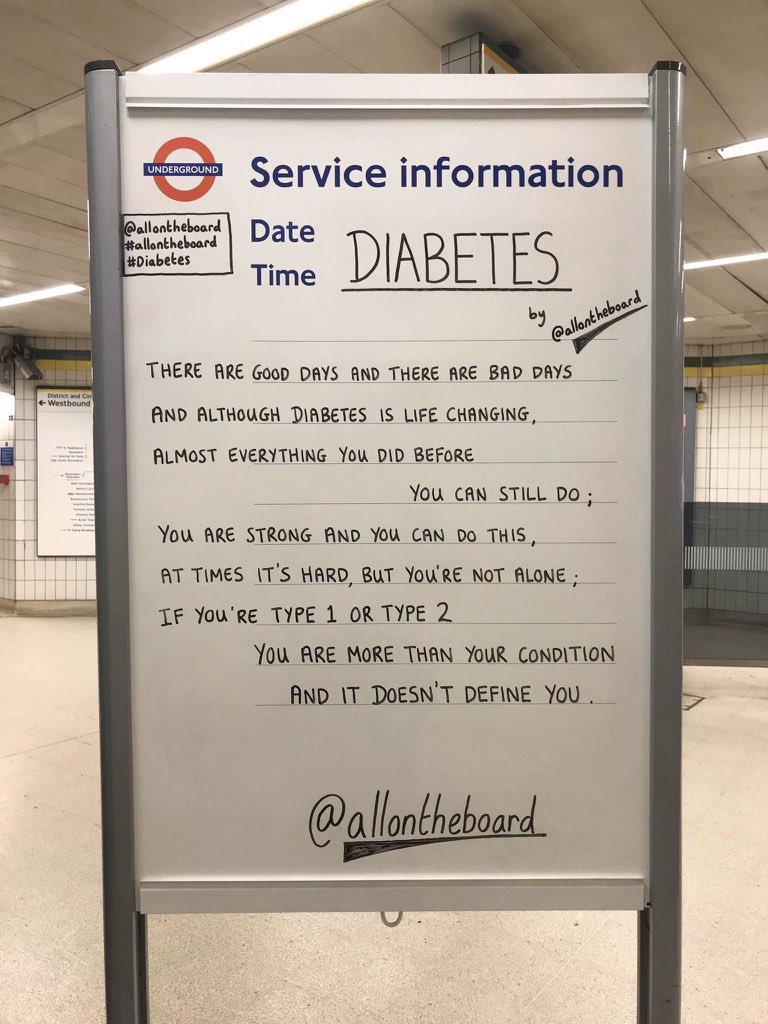 UNDERGROUND
Service information
@allontheboard
#allontheboard
#Diabetes
Date
Time
DIABETES
by @allontheboard
THERE ARE GOOD DAYS AND THERE ARE BAD DAYS
AND ALTHOUGH DIABETES IS LIFE CHANGING,
ALMOST EVERYTHING YOU DID BEFORE
YOU CAN STILL DO;
YOU ARE STRONG AND YOU CAN DO THIS,
AT TIMES IT'S HARD, BUT YOU'RE NOT ALONE;
IF YOU'RE TYPE 1 OR TYPE 2
YOU ARE MORE THAN YOUR CONDITION
AND IT DOESN'T DEFINE YOU.
@allontheboard
District and Circ
Westbound